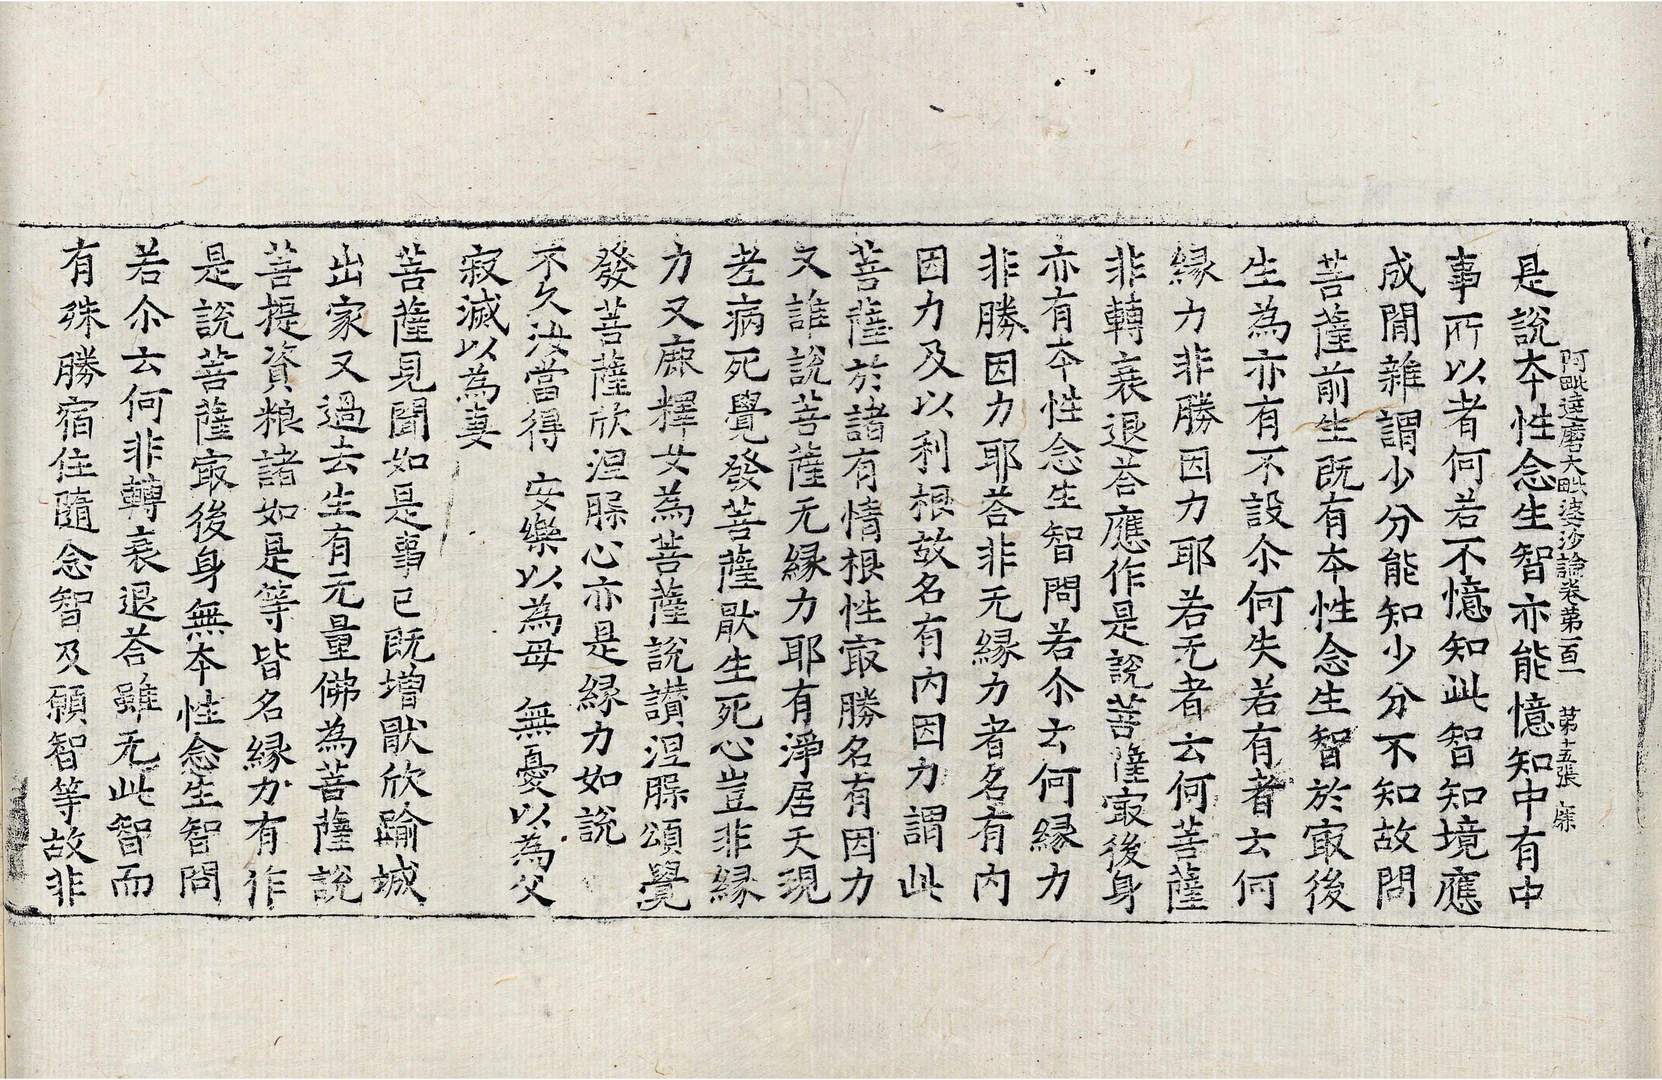 阿毗達磨大毗婆沙論卷第一百一　第十五張　𢈔
是說本性念生智亦能憶知中有中
事所以者何若不憶知此智知境應
成閒雜謂少分能知少分不知故問
菩薩前生既有本性念生智於㝡後
生為亦有不設尒何失若有者云何
緣力非勝因力耶若无者云何菩薩
非轉衰退荅應作是說菩薩㝡後身
亦有本性念生智問若尒云何緣力
非勝因力耶荅非无緣力者名有內
因力及以利根故名有內因力謂此
菩薩於諸有情根性㝡勝名有因力
又誰說菩薩无緣力耶有淨居天現
老病死覺發菩薩猒生死心豈非緣
力又鹿釋女為菩薩說讃涅槃頌覺
發菩薩欣涅槃心亦是緣力如說
不久汝當得　安樂以為母　無憂以為父
寂滅以為妻
菩薩見聞如是事已既增猒欣踰城
出家又過去生有无量佛為菩薩說
菩提資粮諸如是等皆名緣力有作
是說菩薩㝡後身無本性念生智問
若尒云何非轉衰退荅雖无此智而
有殊勝宿住隨念智及願智等故非